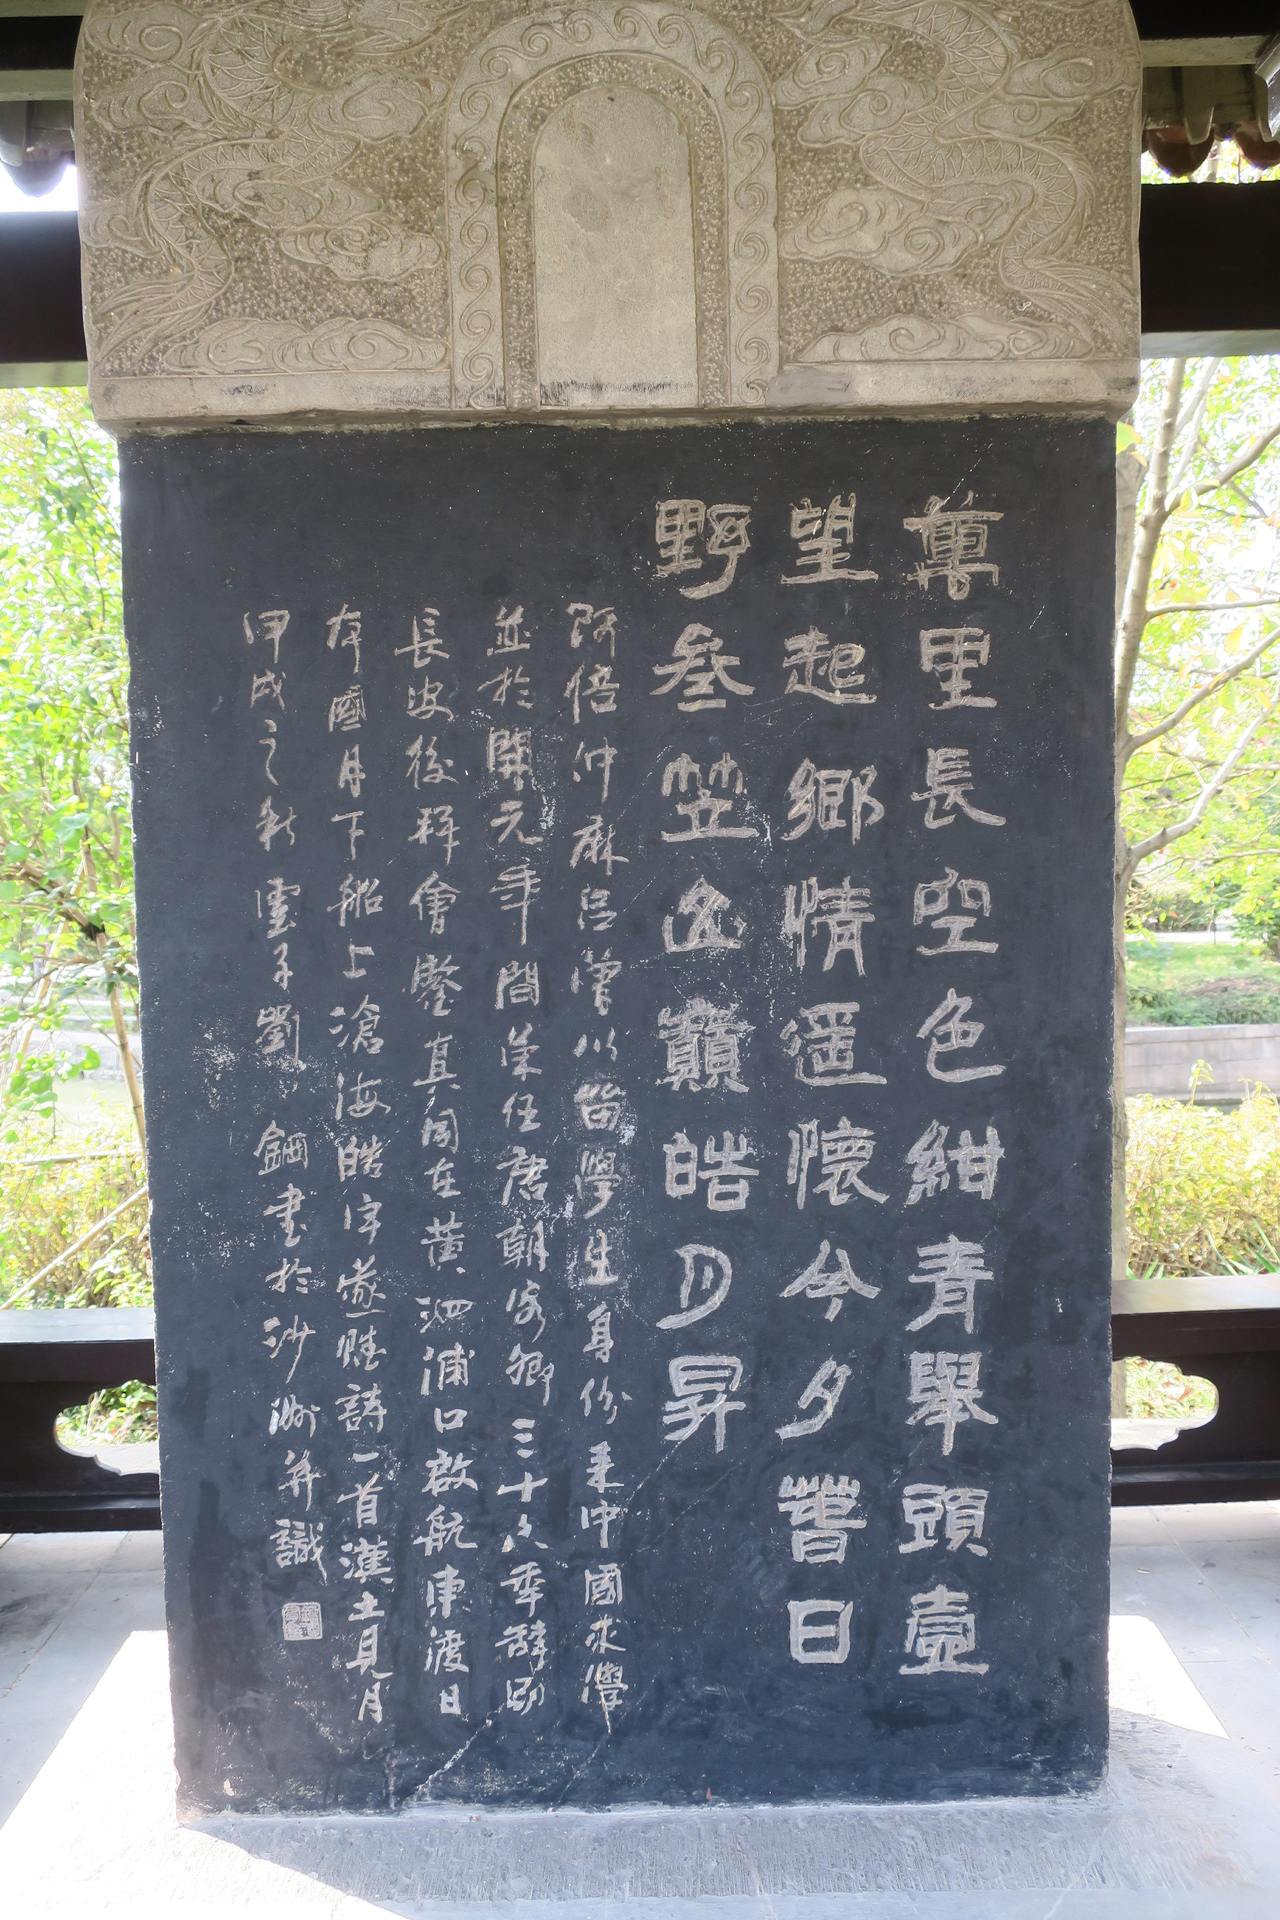 萬里長空色紺青舉頭壹
望起鄉情遥懷今夕春日
野叁笠山巔皓月昇
阿倍仲麻吕曾以留學生身份来中國求學
並於開元年間榮任唐朝客卿三十八年辭別
長安後拜會鑒真同在黄泗浦口啟航東渡日
本國月下船上滄海皓宇遂賦詩一首漢土見月
甲戌之秋雲子劉鋼書於沙洲并識